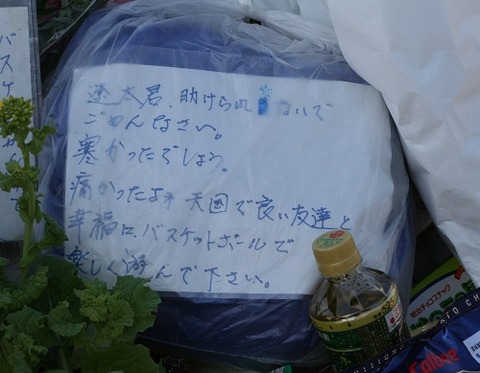 バスケ
遼太君、助けられないで
ごめんなさい。
寒かったでしょう。
痛かったよネ 天国で良い友達と
幸福に バスケットボールで
楽しく遊んで下さい。
Calbee